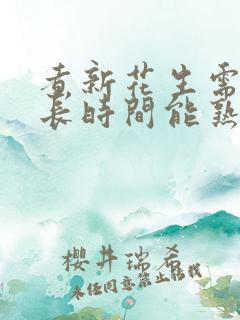 煮新花生需
長時間能熟
櫻井瑞希
未经同意禁止转载